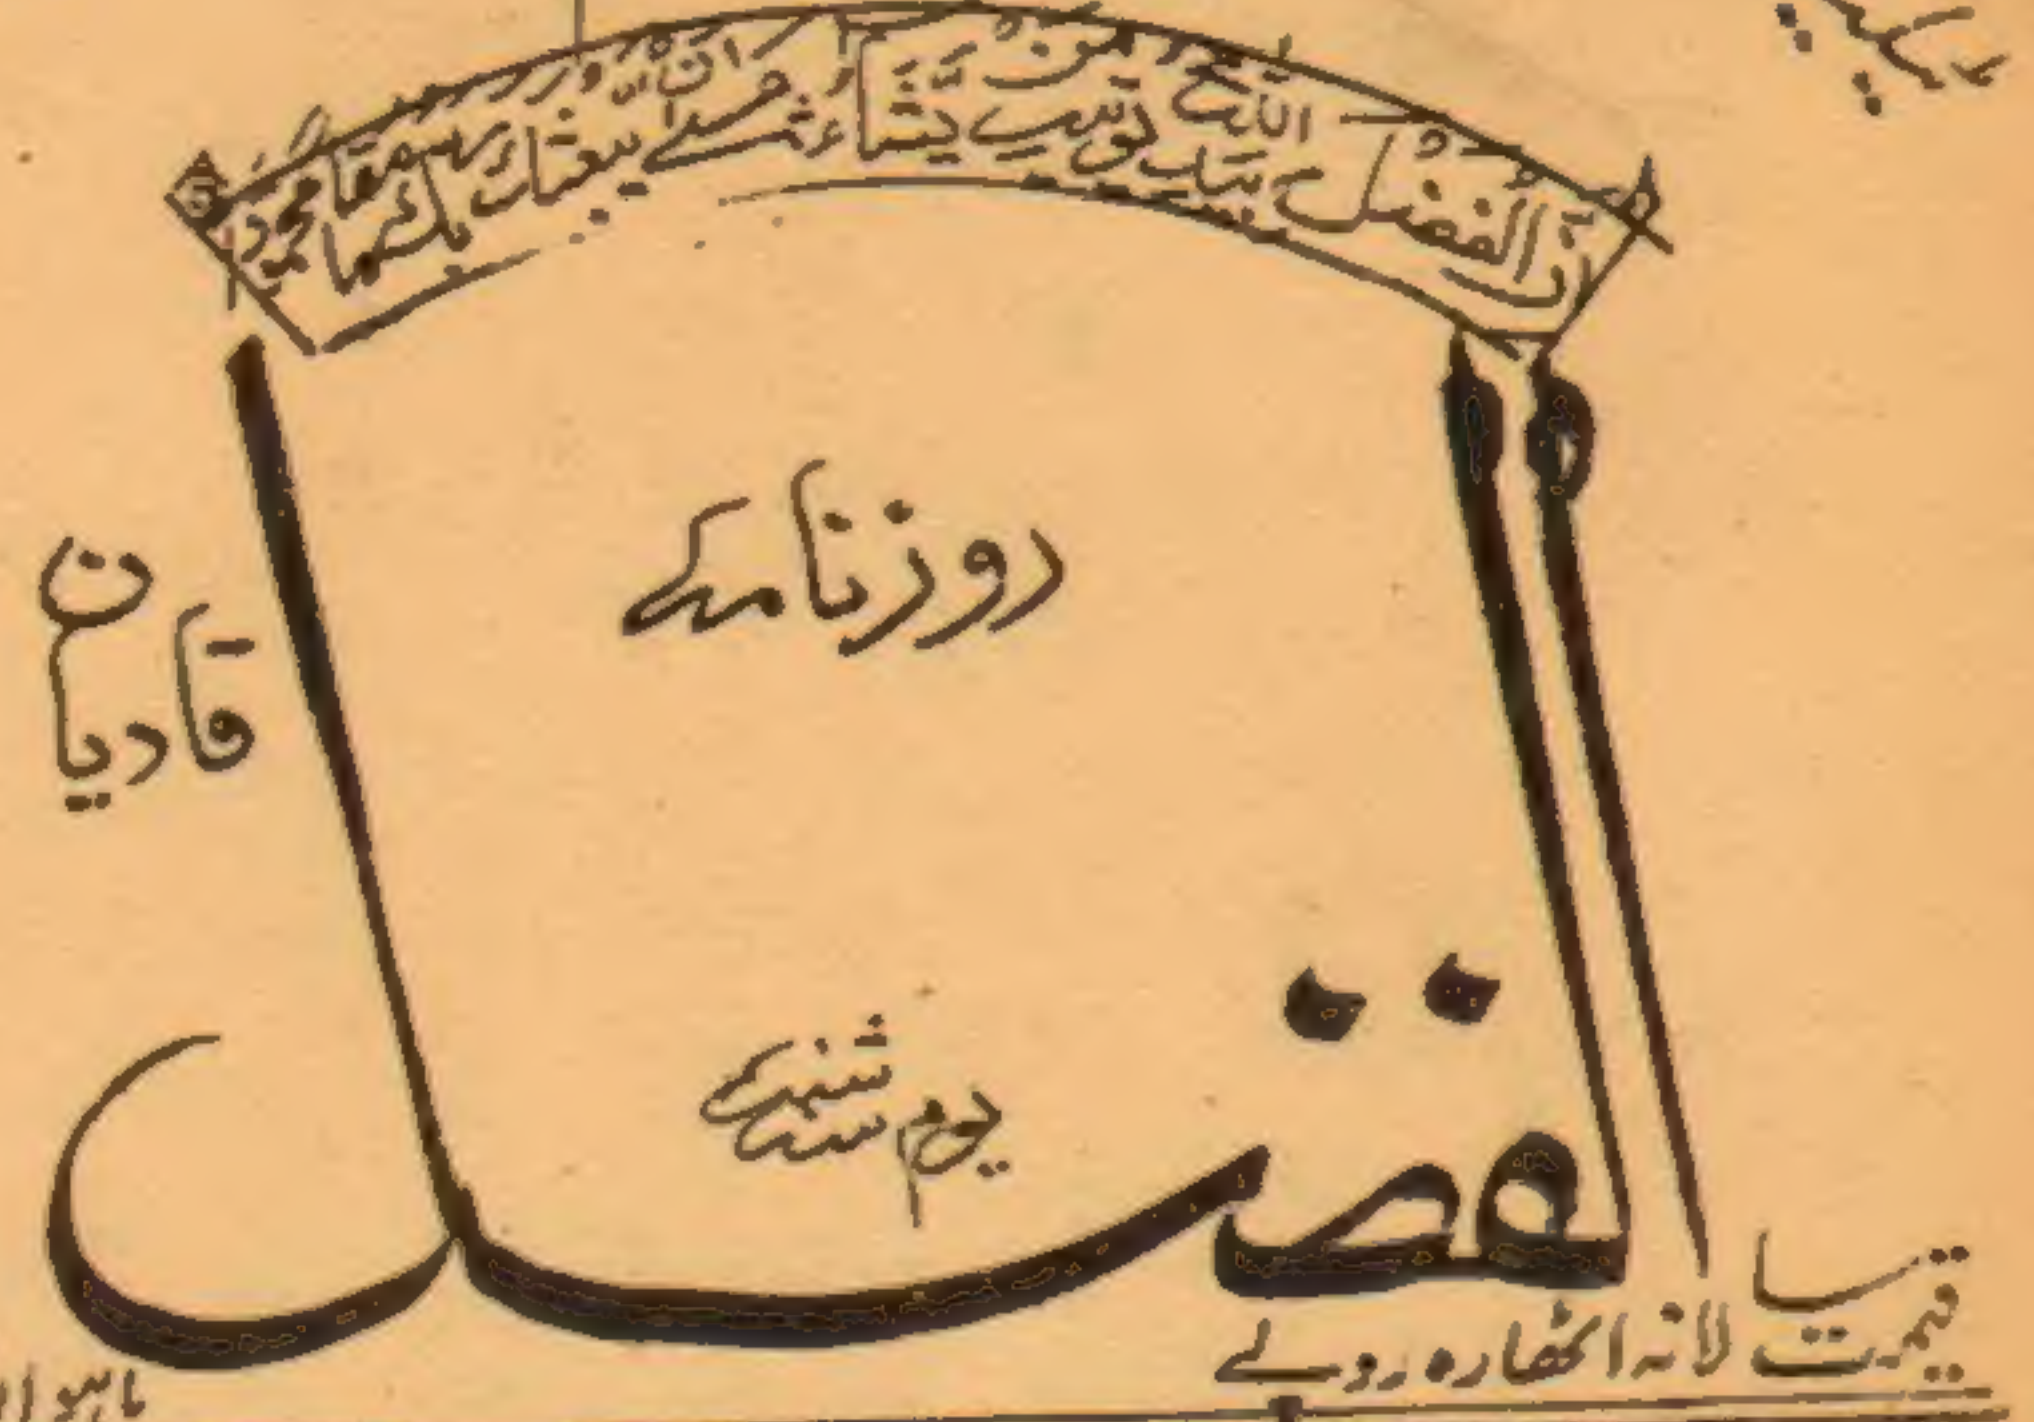 ان الفضل بید اللہ یؤتیہ من یشاء عسے ان یبعثک ربک مقاما محمودا
روزنامہ
قادیان
الفضل
یوم سہ شنبہ
قیمت سالانہ اٹھارہ روپے